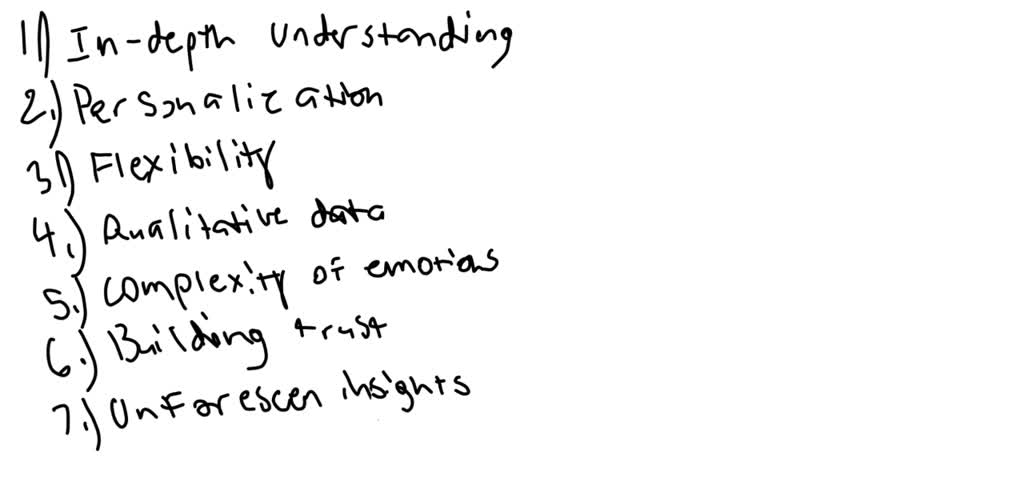 1.) In-depth understanding
2.) Personalization
3.) Flexibility
4.) Qualitative data
5.) Complexity of emotions
6.) Building trust
7.) Unforescen insights